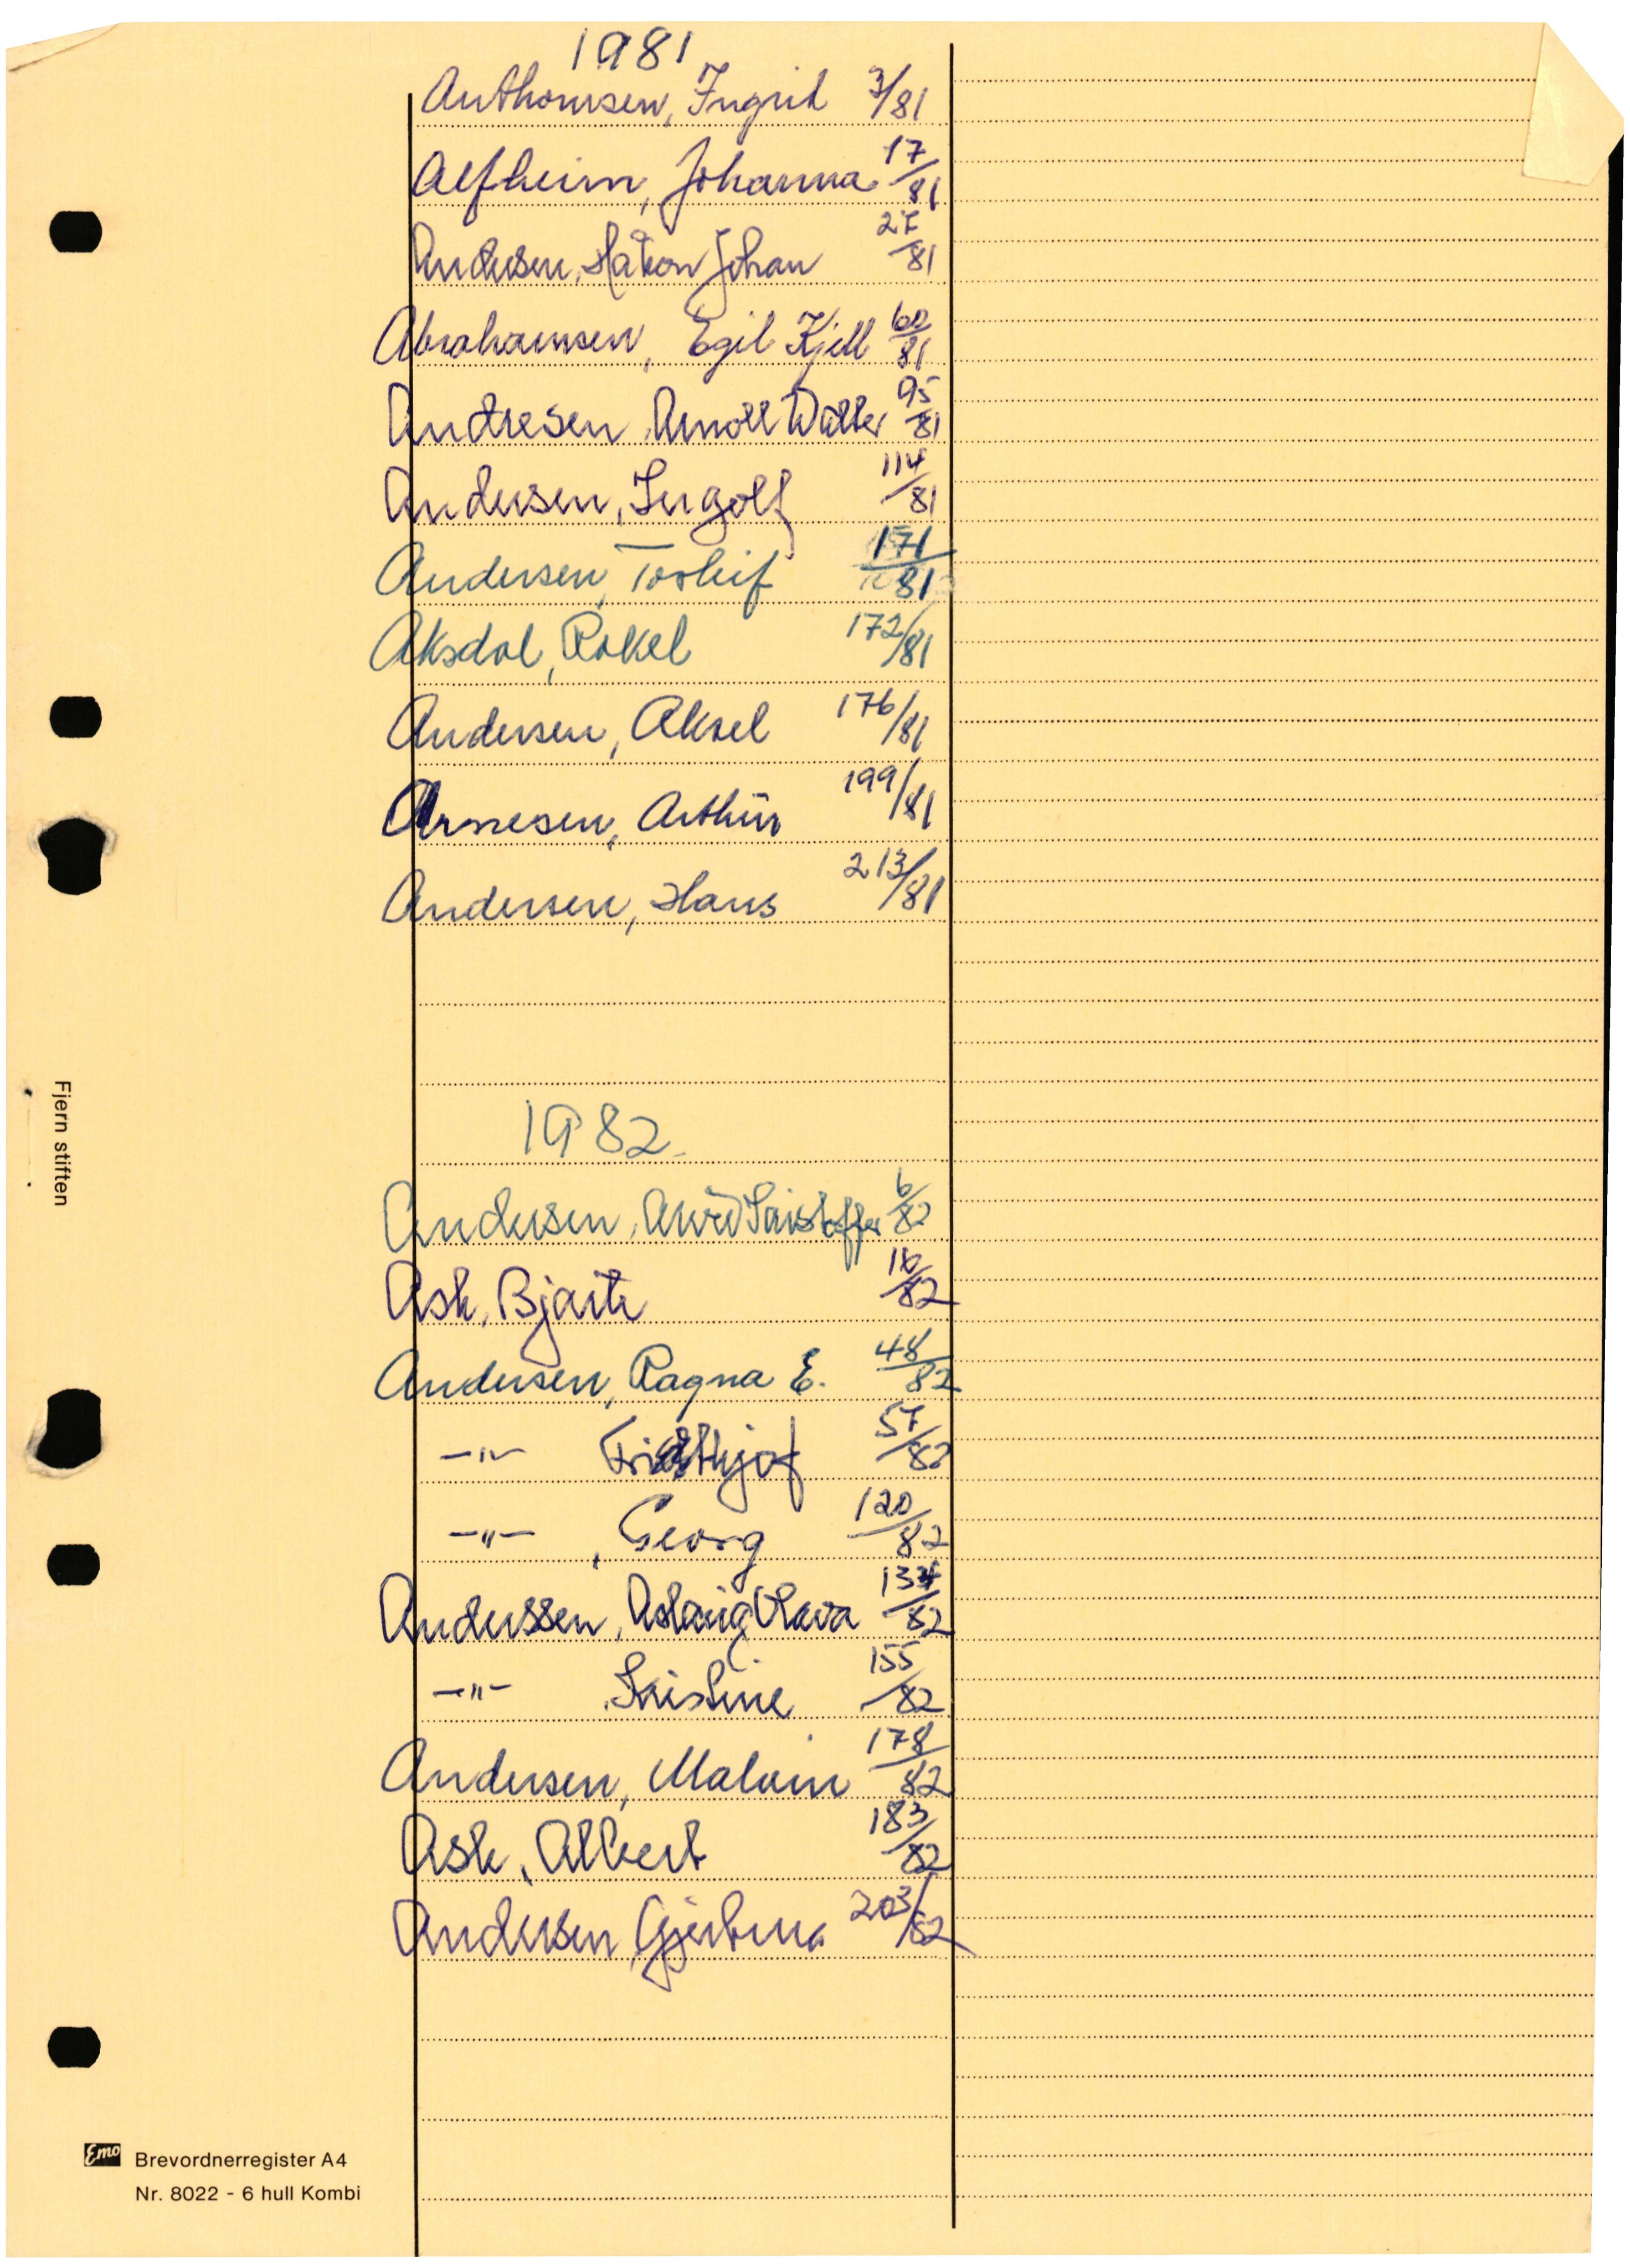 1981
Anthonisen, Ingrid 3/81
Alfheim, Johanna 17/81
Andersen, Håkon Johan 27/81
Abrahamsen, Egil Kjell 60/81
Andresen, Arnold Walter 95/81
Andersen, Ingolf 114/81
Andersen, Torleif 171/81
Aksdal, Rakel 172/81
Andersen, Aksel 176/81
Arnesen, Arthur 199/81
Andersen, Hans 213/81
1982
Andersen, Arvid Kristoffer 6/82
Ask, Bjarte 16/82
Andersen, Ragna E. 48/82
-"- Fridthjof 57/82
-"- , Georg 120/82
Anderssen, Aslaug Olava 134/82
-"- , Kristine 155/82
Andersen, Malvin 178/82
Ask, Albert 183/82
Andersen, Gjertine 203/82
Fjern stiften
Emo Brevordnerregister A4
Nr. 8022 - 6 hull Kombi